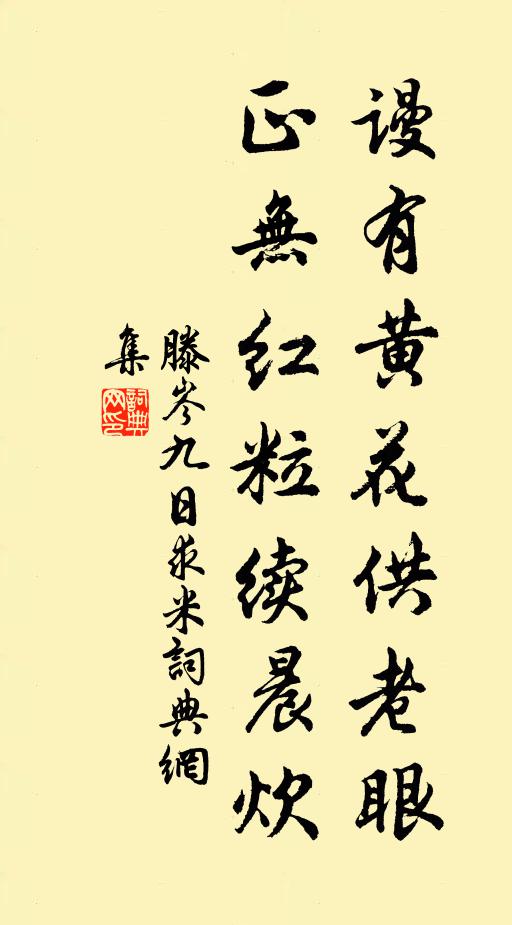 谩有黄花供老眼
正無红粒续晨炊
滕岑九日求米詞典網
集
詞典网印